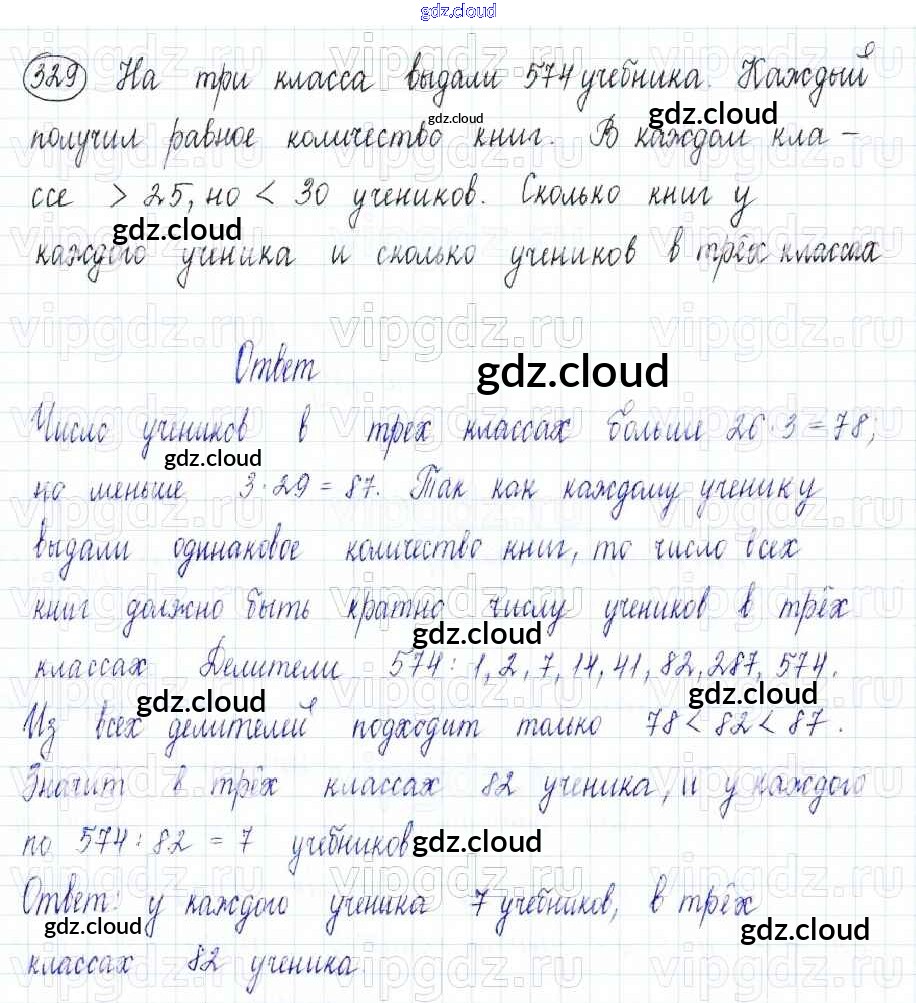 gdz.cloud
329 На три класса выдали 574 учебника. Каждый
gdz.cloud
gdz.cloud
получил равное количество книг. В каждом кла-
ссе > 25, но < 30 учеников. Сколько книг у
gdz.cloud
каждого ученика и сколько учеников в трёх классах
vipgdz.ru vipgdz.ru vipgdz.ru
Ответ
gdz.cloud
Число учеников в трех классах больше 26·3=78;
gdz.cloud
но меньше 3·29=87. Так как каждому ученику
выдали одинаковое количество книг, то число всех
книг должно быть кратно числу учеников в трёх
gdz.cloud
классах Делители 574: 1, 2, 7, 14, 41, 82, 287, 574.
gdz.cloud gdz.cloud
Из всех делителей подходит только 78<82<87.
Значит в трёх классах 82 ученика, и у каждого
по 574:82=7 учебников
gdz.cloud
Ответ: у каждого ученика 7 учебников, в трёх
gdz.cloud gdz.cloud
классах 82 ученика.